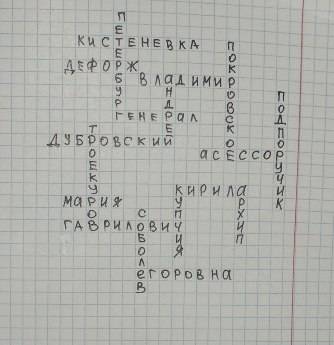 ПЕТЕРБУРГ
КИСТЕНЕВКА
ПОКРОВСКОЕ
ДЕФОРЖ
ВЛАДИМИР
АНДРЕЙ
ПОДПОРУЧИК
ГЕНЕРАЛ
ТРОЕКУРОВ
ДУБРОВСКИЙ
АСЕССОР
КИРИЛА
КУПЧИЯ
АРХИП
МАРИЯ
СОБОЛЕВ
ГАВРИЛОВИЧ
ЕГОРОВНА